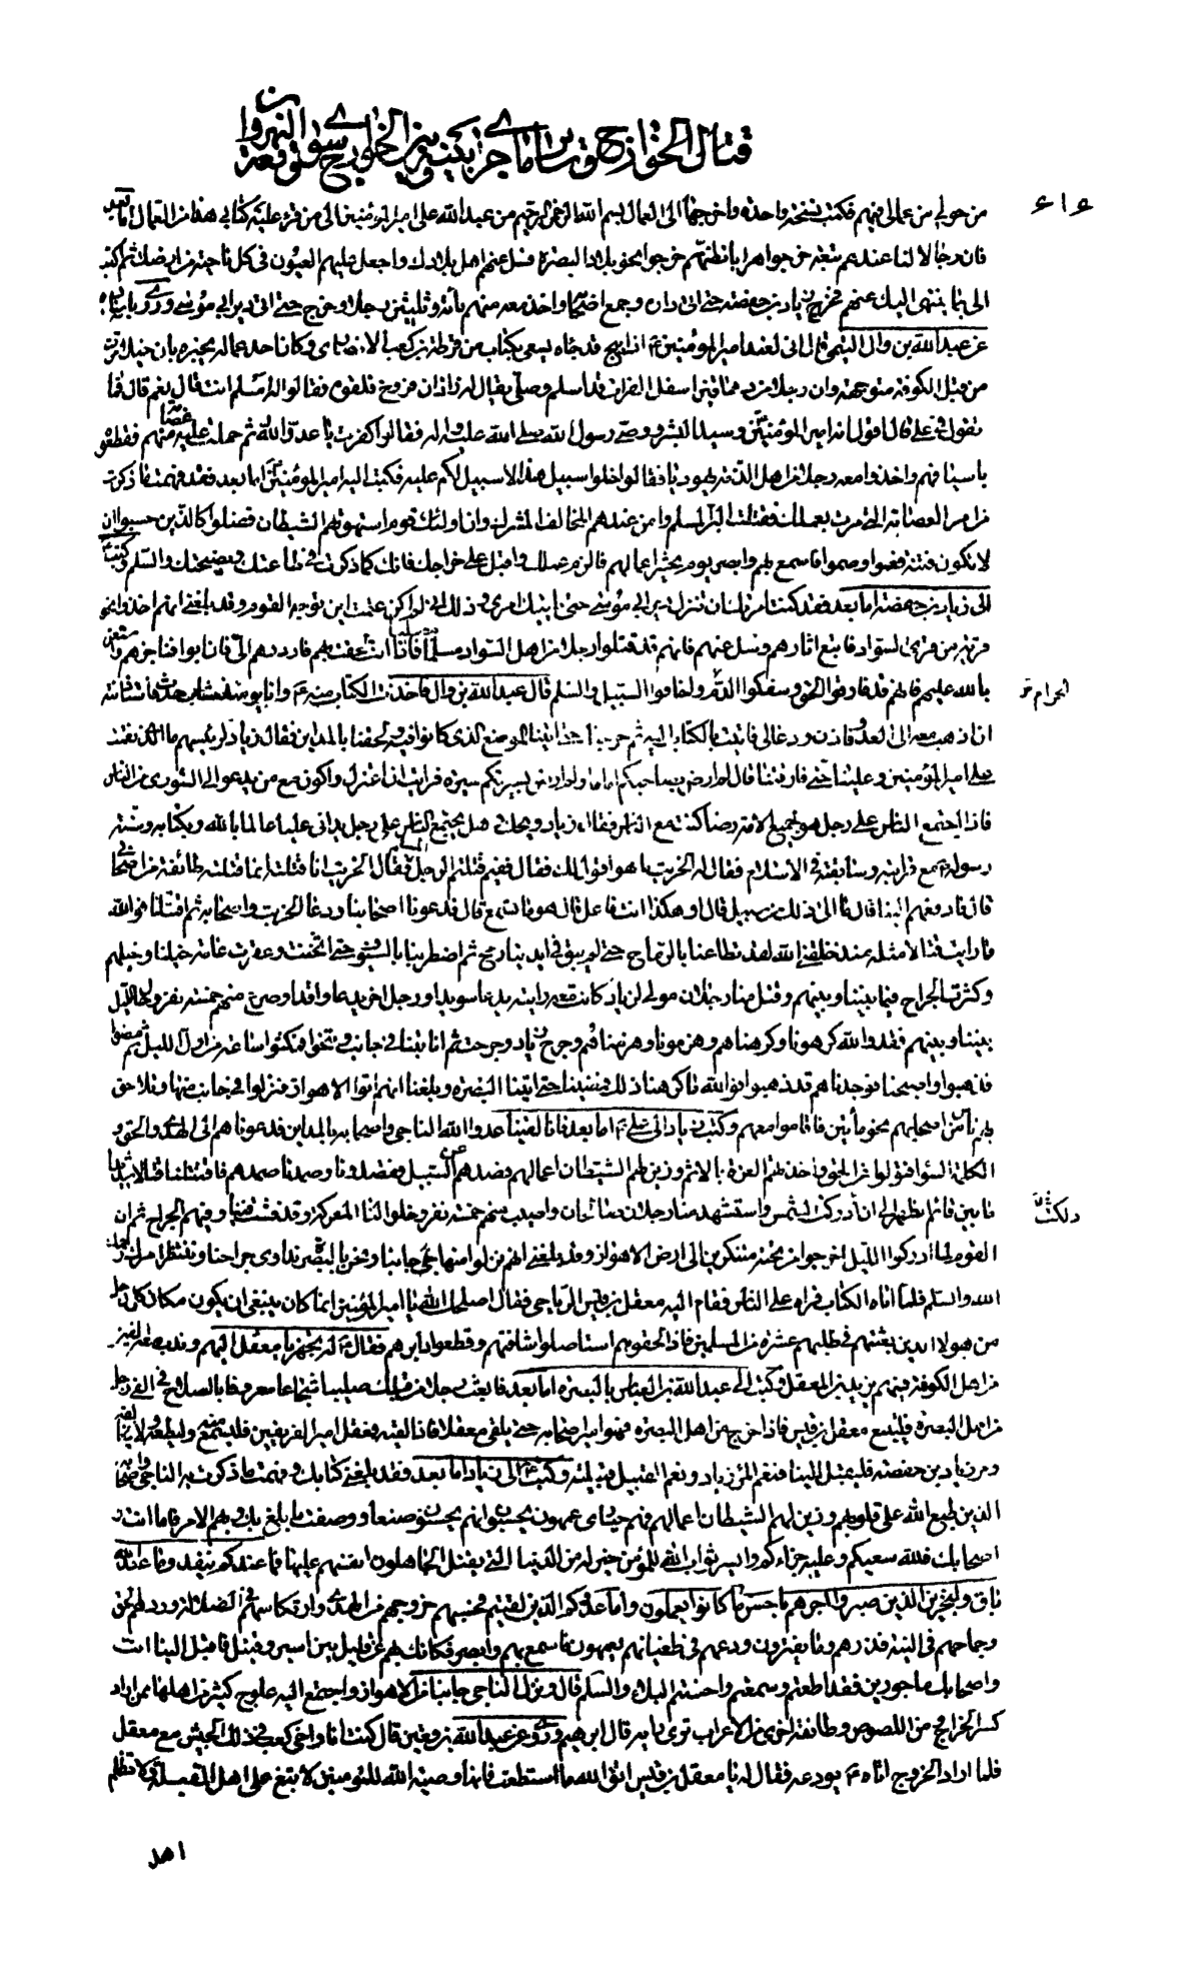 قتال الخوارج و
من حولى من عمالى فيهم فكتب نسخة واحدة واخرجها الى العمال بسم الله الرحمن الرحيم من عبد الله على امير المؤمنين الى من قرء عليه كتابى هذا من العمال اما بعد
فان رجالا لنا عندهم تبعة خرجوا هرابا نظنهم خرجوا نحو بلاد البصرة فسل عنهم اهل بلادك واجعل عليهم العيون فى كل ناحية من ارضك ثم اكتب
الى بما ينتهى اليك عنهم فخرج زياد بن حفصة حتى اتى داره وجمع اصحابه واخذ معه منهم مأة وثلثين رجلا وخرج حتى اتى دير ابى موسى وروى باسناده
عن عبد الله بن وال التيمى قال انى لعند امير المؤمنين اذا فيج قد جاءه يسعى بكتاب من قرظة بن كعب الانصارى وكان احد عماله يخبره بان خيلا مرت
من قبل الكوفة متوجهة وان رجلا من دهاقين اسفل الفرات قد اسلم وصلى يقال له زاذان فروخ فلقوه فقالوا له أمسلم انت قال نعم قال فما
تقول فى على قال اقول انه امير المؤمنين وسيد البشر ووصى رسول الله صلى الله عليه واله فقالوا كفرت يا عدو الله ثم حملت عليه عصابة منهم فقطعوه
باسيافهم واخذوا معه رجلا من اهل الذمة يهوديا فقالوا خلوا سبيل هذا لا سبيل لكم عليه فكتب اليه امير المؤمنين اما بعد فقد فهمت ما ذكرت
من امر العصابة التى مرت بعملك فقتلت البر المسلم وامن عندهم المخالف المشرك وان اولئك قوم استهوتهم الشيطان فضلوا كالذين حسبوا ان
لا تكون فتنة فعموا وصموا فاسمع بهم وابصر يوم يحشر اعمالهم فالزم عملك واقبل على خراجك فانك كما ذكرت فى طاعتك ونصيحتك والسلم وكتب
الى زياد بن حفصة اما بعد فقد كنت امرتك ان تنزل دير ابى موسى حتى يأتيك امرى وذلك انى لم اكن علمت اين توجه القوم وقد بلغنى انهم اخذوا نحو
قرية من قرى السواد فاتبع اثارهم وسل عنهم فانهم قد قتلوا رجلا من اهل السواد مسلما فاذا انت لحقت بهم فارددهم الى فان ابوا فناجزهم واستعن
بالله عليهم فانهم قد فارقوا الحق وسفكوا الدم واخافوا السبيل والسلم قال عبد الله بن وال فاخذت الكتاب منه وانا يومئذ شاب حدث
الحرام
ان اذهب معه الى العدو فاذن ودعا لى فاتيت بالكتاب اليه ثم خرجنا حتى اتينا الموضع الذى كانوا فيه فلحقنا بالمداين فقال زياد لرئيسهم ما الذى نقمت
على امير المؤمنين وعلينا حتى فارقتنا قال لم ارض بصاحبكم اماما ولم ارض بسيرتكم سيرة فرايت ان اعتزل واكون مع من يدعو الى الشورى من الناس
فاذا اجتمع الناس على رجل هو لجميع الامة رضا كنت مع الناس فقال زياد ويحك وهل يجتمع الناس على رجل يدانى عليا عالما بالله وبكتابه وسنة
رسوله مع قرابته وسابقته فى الاسلام فقال له الخريت ما هو اقول لك فقال ففيم قتلتم الرجل المسلم فقال الخريت انا قتلته انما قتلته طائفة من اصحابى
قال فادفعهم الينا قال ما الى ذلك من سبيل قال او هكذا انت فاعل قال هو ما تسمع قال فدعونا اصحابنا ودعا الخريت واصحابه ثم اقتتلنا فوالله
ما رايت قتالا مثله منذ خلقنى الله لقد تطاعنا بالرماح حتى لم يبق فى ايدينا رمح ثم اضطربنا بالسيوف حتى انحنت وعقرت عامة خيلنا وخيلهم
وكثرت الجراح فيما بيننا وبينهم وقتل منا رجلان مولى لزياد كانت معه رايته يدعى سويدا ورجل اخر يدعى واقدا وصرع منهم خمسة نفر وحال الليل
بيننا وبينهم فقد والله كرهونا وكرهناهم وهزمونا وهزمناهم وجرح زياد وجرحت ثم انا بتنا فى جانب وتنحوا فمكثوا ساعة من اول الليل ثم مضوا
فذهبوا واصبحنا فوجدناهم قد ذهبوا فوالله ما كرهنا ذلك فمضينا حتى اتينا البصرة وبلغنا انهم اتوا الاهواز فنزلوا فى جانب منها وتلاحق
بهم ناس من اصحابهم نحو مأتين فاقاموا معهم وكتب زياد الى على اما بعد فانا لقينا عدو الله الناجى واصحابه بالمداين فدعوناهم الى الهدى والحق و
الكلمة السواء فتولوا عن الحق واخذتهم العزة بالاثم وزين لهم الشيطان اعمالهم فصدهم عن السبيل فقصدونا وصمدنا صمدهم فاقتتلنا قتالا شديدا
ما بين قائم الظهر الى ان دركت الشمس واستشهد منا رجلان صالحان واصيب منهم خمسة نفر وخلوا لنا المعركة وقد فشت فينا وفيهم الجراح ثم ان
دلكت
القوم لما ادركوا الليل خرجوا من تحته متنكرين الى ارض الاهواز وقد بلغنى انهم نزلوا منها جانبا ونحن بالبصرة نداوى جراحنا وننتظر امرك رحمك
الله والسلم فلما اتاه الكتاب قراه على الناس فقام اليه معقل بن قيس الرياحى فقال اصلحك الله يا امير المؤمنين انما كان ينبغى ان يكون مكان كل رجل
من هولاء الذين بعثتهم فى طلبهم عشرة من المسلمين فاذا لحقوهم استاصلوا شافتهم وقطعوا دابرهم فقال له تجهز يا معقل اليهم وندب معه الفين
من اهل الكوفة فيهم يزيد بن المعقل وكتب الى عبد الله بن العباس بالبصرة اما بعد فابعث رجلا من قبلك صليبا شجاعا معروفا بالصلاح فى الفى رجل
من اهل البصرة فليتبع معقل بن قيس فاذا خرج من اهل البصرة فهو امير اصحابه حتى يلقى معقلا فاذا لقيه فمعقل امير الفريقين فليسمع منه وليطعه ولا يخالفه
ومر زياد بن حفصة فليقبل الينا فنعم المرء زياد ونعم القبيل قبيلته وكتب الى زياد اما بعد فقد بلغنى كتابك وفهمت ما ذكرت به الناجى واصحابه
الذين طبع الله على قلوبهم وزين لهم الشيطان اعمالهم فهم حيارى عمهون يحسبون انهم يحسنون صنعا ووصفت ما بلغ بك وبهم الامر فاما انت و
اصحابك فلله سعيكم وعليه جزاءكم وايسر ثواب الله للمؤمن خير له من الدنيا التى يقتل الجاهلون انفسهم عليها فما عندكم ينفد وما عند الله
باق ولنجزين الذين صبروا اجرهم باحسن ما كانوا يعملون واما عدوكم الذين لقيتم فحسبهم خروجهم من الهدى وارتكاسهم فى الضلالة وردهم الحق
وجماحهم فى التيه فذرهم وما يفترون ودعهم فى طغيانهم يعمهون فاسمع بهم وابصر فكانك بهم عن قليل بين اسير وقتيل فاقبل الينا انت
واصحابك ماجورين فقد اطعتم وسمعتم واحسنتم البلاء والسلم قال ونزل الناجى جانبا من الاهواز واجتمع اليه علوج كثير من اهلها ممن اراد
كسر الخراج من اللصوص وطائفة اخرى من الاعراب ترى رايه قال ابرهيم وروى عن عبد الله بن قعين قال كنت انا واخى كعب فى ذلك الجيش مع معقل
فلما اراد الخروج اتاه يودعه فقال له يا معقل بن قيس اتق الله ما استطعت فانها وصية الله للمؤمنين لا تبغ على اهل القبلة ولا تظلم
اهل